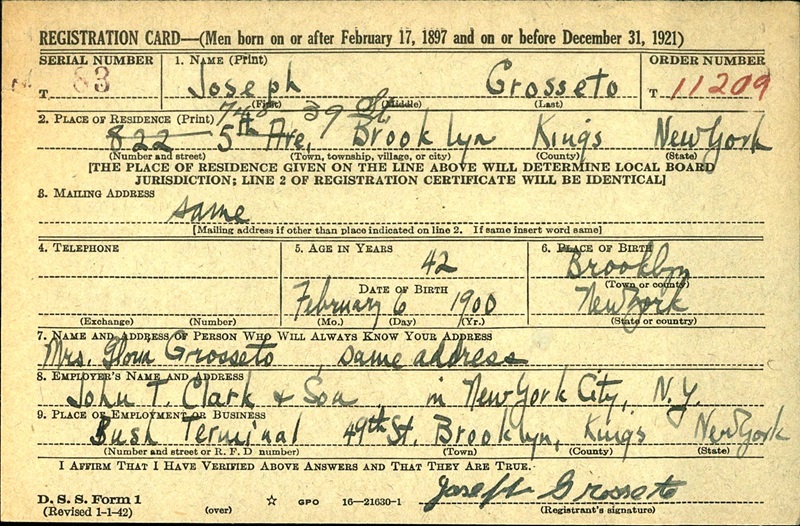 REGISTRATION CARD—(Men born on or after February 17, 1897 and on or before December 31, 1921)
SERIAL NUMBER 1. NAME (Print) ORDER NUMBER
T 83 Joseph Grosseto T 11209
(First) (Middle) (Last)
39 St
2. PLACE OF RESIDENCE (Print)
822 5th Ave, Brooklyn Kings New York
(Number and street) (Town, township, village, or city) (County) (State)
[THE PLACE OF RESIDENCE GIVEN ON THE LINE ABOVE WILL DETERMINE LOCAL BOARD
JURISDICTION; LINE 2 OF REGISTRATION CERTIFICATE WILL BE IDENTICAL]
3. MAILING ADDRESS
same
[Mailing address if other than place indicated on line 2. If same insert word same]
4. TELEPHONE 5. AGE IN YEARS 6. PLACE OF BIRTH
42 Brooklyn
(Town or county)
DATE OF BIRTH
February 6 1900 New York
(Exchange) (Number) (Mo.) (Day) (Yr.) (State or country)
7. NAME AND ADDRESS OF PERSON WHO WILL ALWAYS KNOW YOUR ADDRESS
Mrs. Grosseto, same address
8. EMPLOYER'S NAME AND ADDRESS
John T. Clark & Son, in New York City, N.Y.
9. PLACE OF EMPLOYMENT OR BUSINESS
Bush Terminal 49th St. Brooklyn, Kings New York
(Number and street or R. F. D number) (Town) (County) (State)
I AFFIRM THAT I HAVE VERIFIED ABOVE ANSWERS AND THAT THEY ARE TRUE.
Joseph Grosseto
D. S. S. Form 1
(Revised 1-1-42) (over) ☆ GPO 16—21630-1 (Registrant's signature)